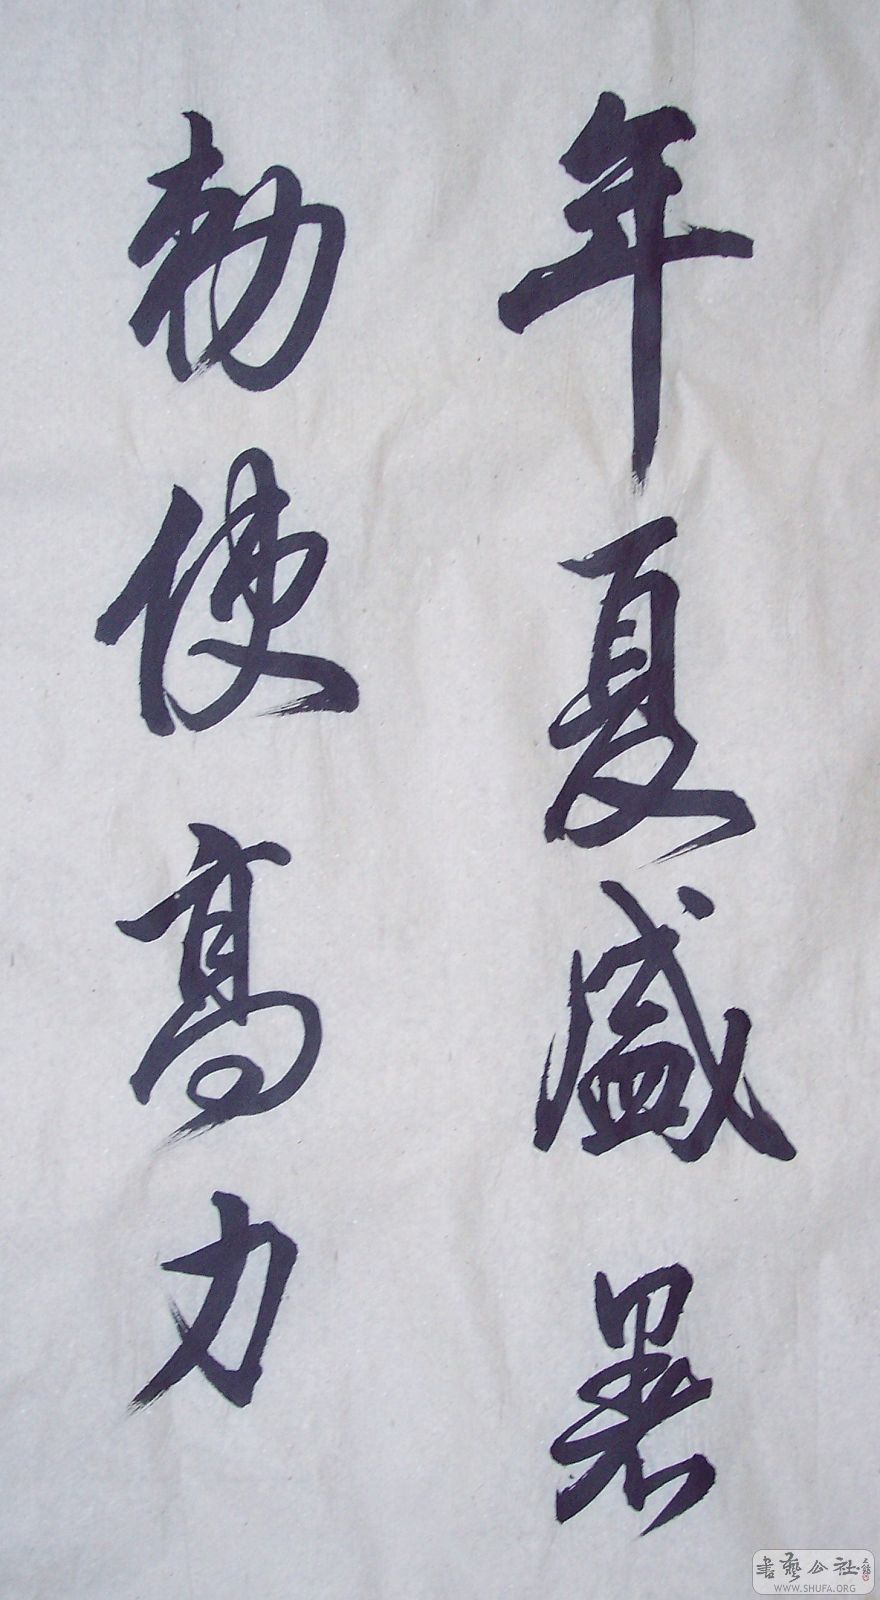 年夏盛暑
勑使高力
書藝公社
WWW.SHUFA.ORG